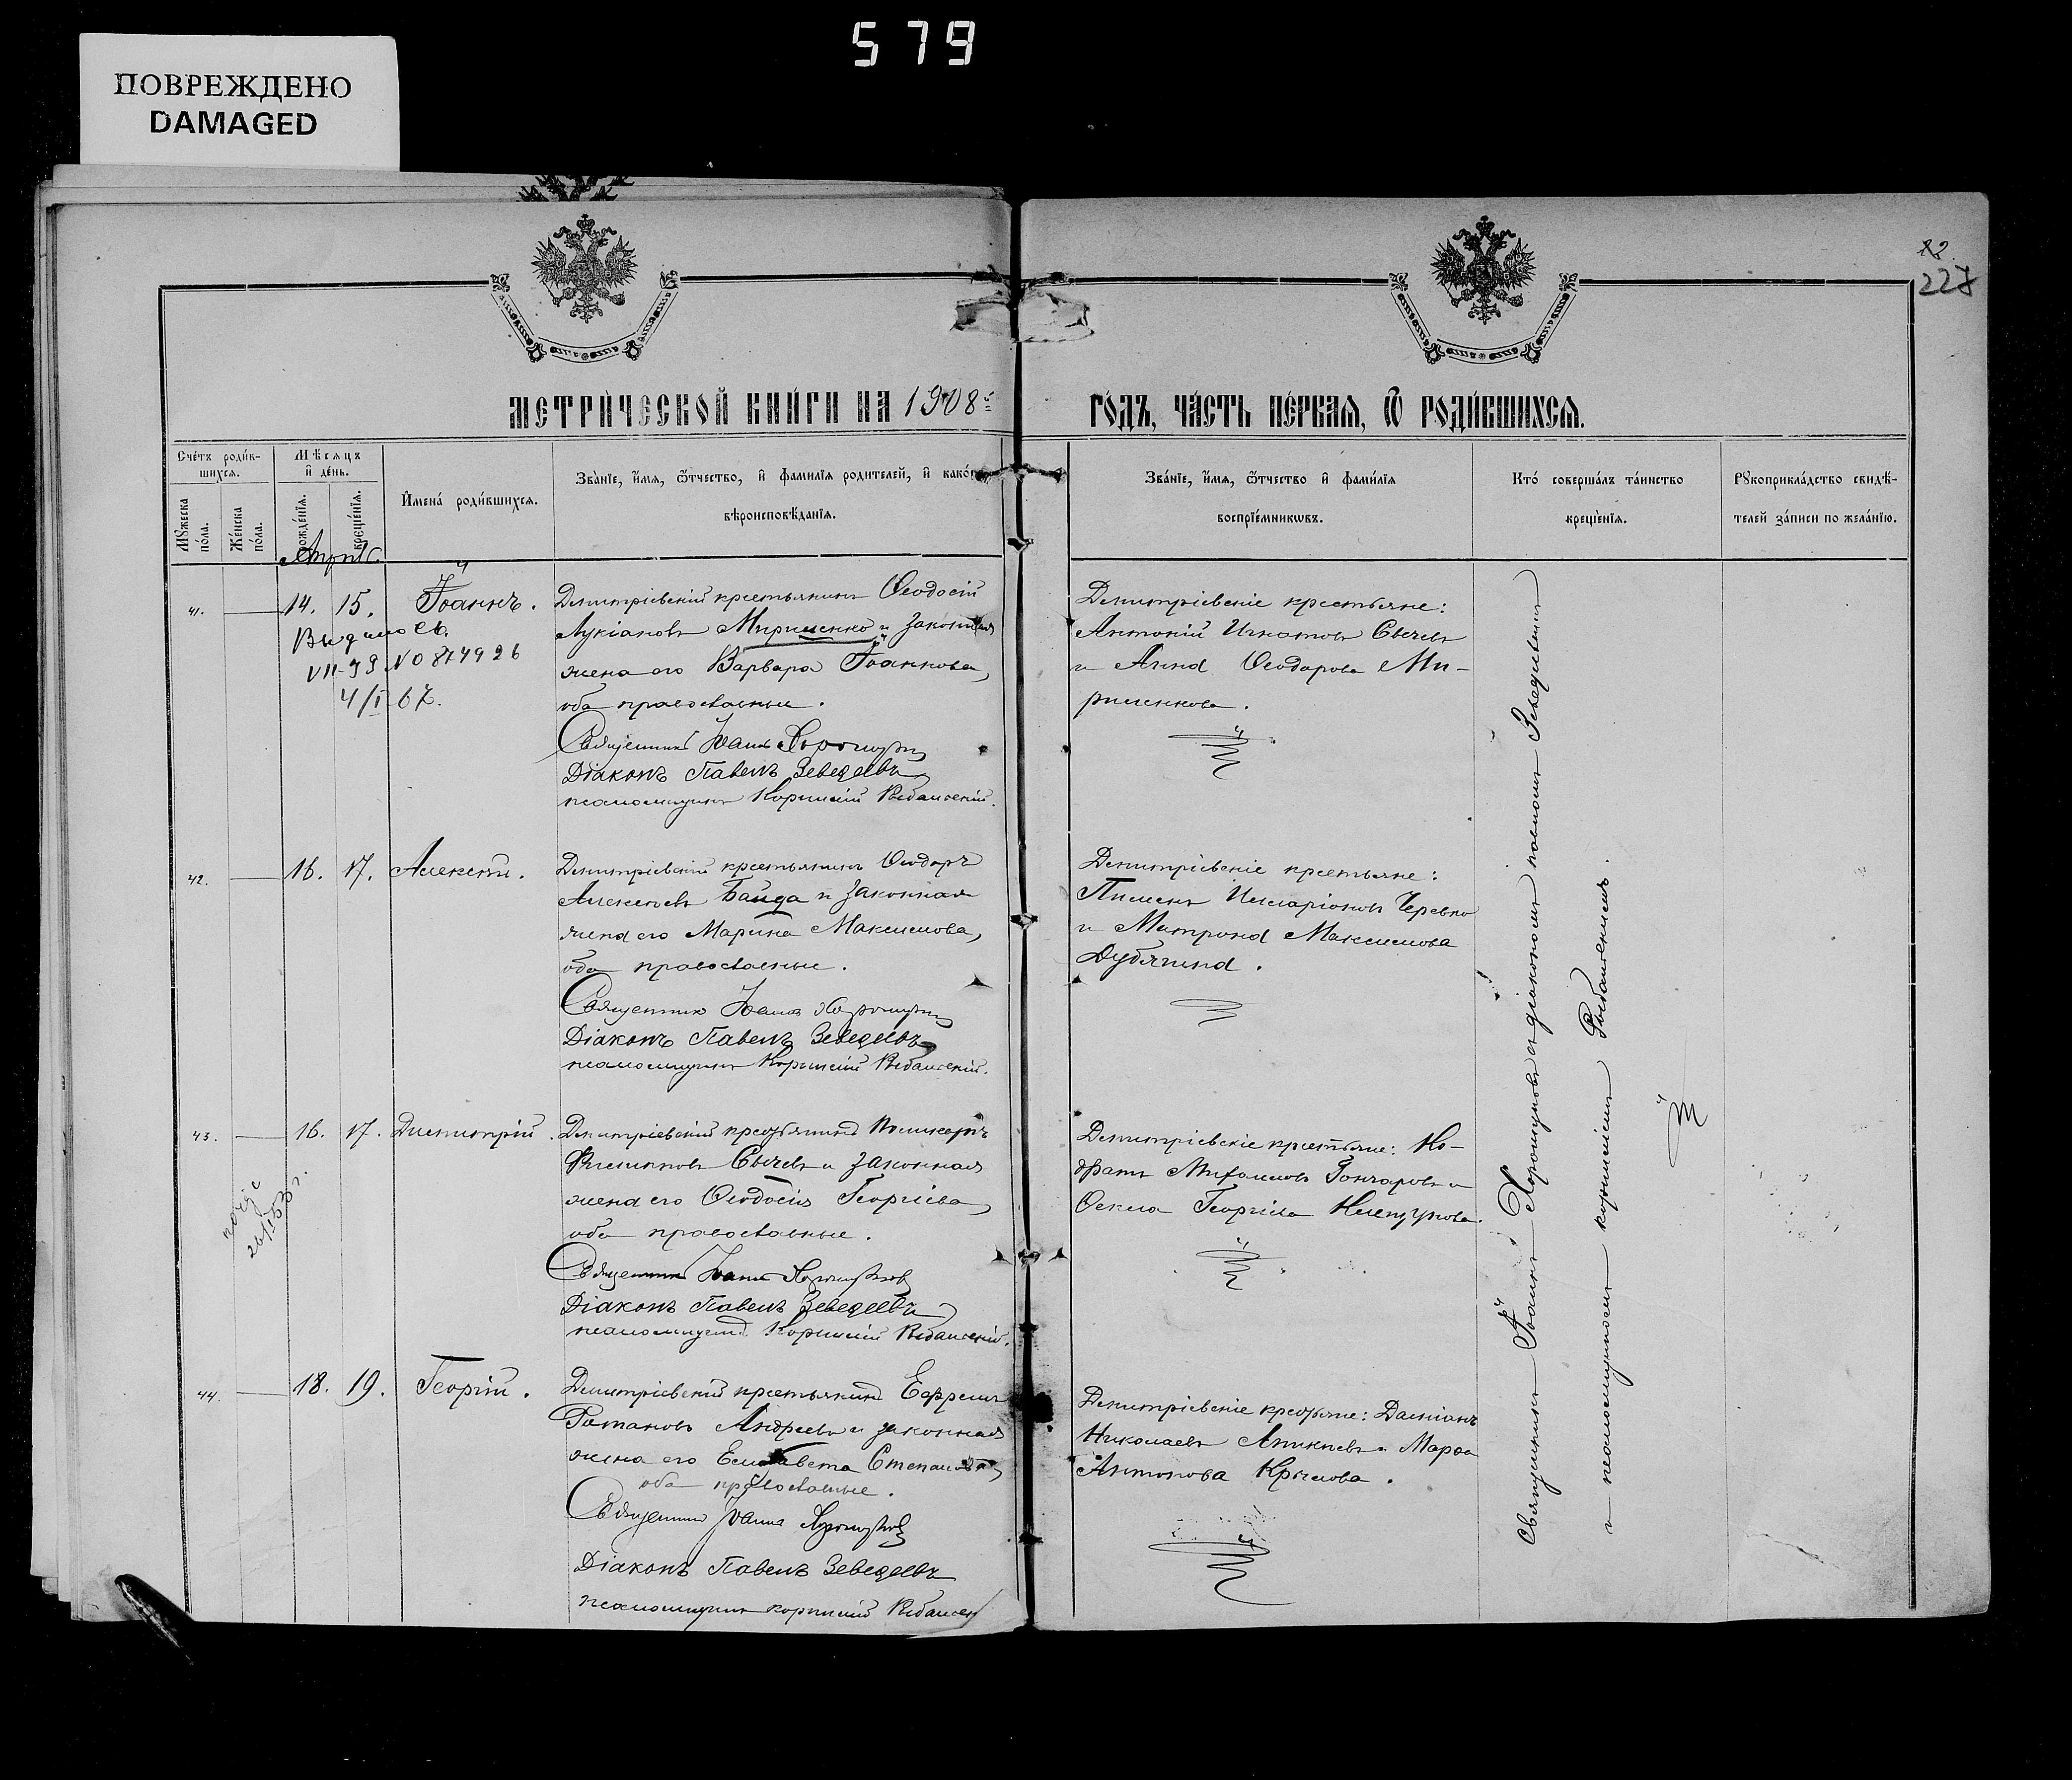 579
ПОВРЕЖДЕНО
DAMAGED
12.
228
МЕТРИ́ЧЕСКОЙ КНИ́ГИ НА 1908 й
ГО́ДЪ, ЧА́СТЬ ПЕ́РВАЯ, Ѿ РОДИ́ВШИХСЯ.
Сче́тъ роди́в-
шихся.
Мꙋ́жеска по́ла.
Же́нска по́ла.
Мѣ́сяцъ
и҆ де́нь.
рожде́нїя.
креще́нїя.
И҆мена̀ роди́вшихся.
Зва́нїе, и҆́мя, ѻ҆́тчество, и҆ фами́лїя роди́телей, и҆ како́г
вѣроисповѣ́данїя.
Зва́нїе, и҆́мя, ѻ҆́тчество и҆ фами́лїя
воспрїе́мникѡвъ.
Кто̀ соверша́лъ та́инство
креще́нїя.
Рꙋкоприкла́дство свидѣ́-
телей за́писи по жела́нїю.
Апрѣль
41. 14. 15. Іоаннъ.
Выдалось
VII-ЯЯ №874926
4/I-67.
Димитріевскій крестьянинъ Ѳеодосій
Лукіановъ Мирименко и законная
жена его Варвара Іоаннова,
оба православные.
Священникъ Іоаннъ Хорошуновъ
Діаконъ Павелъ Зеведеевъ
псаломщикъ Корнилій Рыбальскій.
Димитріевскіе крестьяне:
Антоній Игнатовъ Сычевъ
и Анна Ѳеодорова Ми-
рименкова.
42. 16. 17. Алексѣй.
Димитріевскій крестьянинъ Ѳеодоръ
Алексѣевъ Байда и законная
жена его Марина Максимова,
оба православные.
Священникъ Іоаннъ Хорошуновъ
Діаконъ Павелъ Зеведеевъ
псаломщикъ Корнилій Рыбальскій.
Димитріевскіе крестьяне:
Пименъ Илларіоновъ Черевко
и Матрона Максимова
Дубягина.
43. 16. 17. Димитрій.
26/I 53 г.
Димитріевскій крестьянинъ
Филипповъ Сычевъ и законная
жена его Ѳеодосія Георгіева,
оба православные.
Священникъ Іоаннъ Хорошуновъ
Діаконъ Павелъ Зеведеевъ
псаломщикъ Корнилій Рыбальскій.
Димитріевскіе крестьяне: Ко-
дратъ Михаиловъ Гончаровъ и
Ѳекла Георгіева
44. 18. 19. Георгій.
Димитріевскій крестьянинъ Ефремъ
Романовъ Андреевъ и законная
жена его Елизавета Степанова,
оба православные.
Священникъ Іоаннъ Хорошуновъ
Діаконъ Павелъ Зеведеевъ
псаломщикъ Корнилій Рыбальск
Димитріевскіе крестьяне: Даміанъ
Николаевъ Аникіевъ и Марѳа
Антонова Крылова.
Священникъ Іоаннъ Хорошуновъ съ діакономъ Павломъ Зеведеевымъ
и псаломщикомъ Корниліемъ Рыбальскимъ.